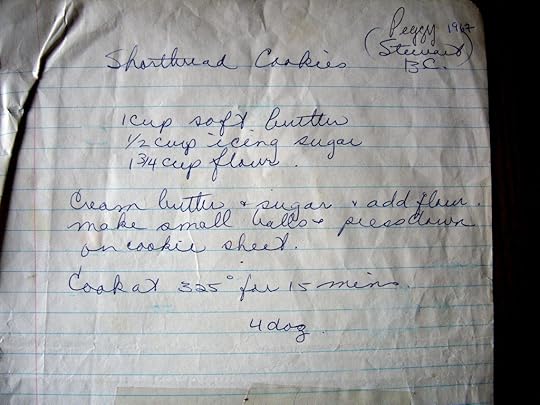 Peggy 1962
(Stewart
B.C.)
Shortbread Cookies
1 cup soft butter
1/2 cup icing sugar
1 3/4 cup flour.
Cream butter & sugar & add flour.
make small balls & press down
on cookie sheet.
Cook at 325° for 15 mins.
4 doz.